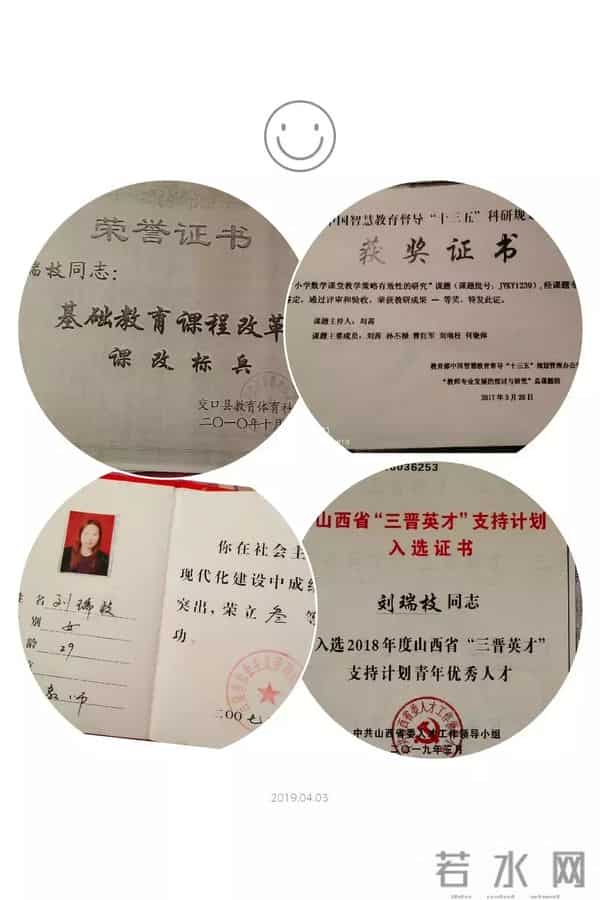 荣誉证书
瑞枝同志：
基础教育课程改革
课改标兵
交口县教育体育科
二〇一〇年十月
中国智慧教育督导“十三五”科研规
获奖证书
小学数学课堂教学策略有效性的研究”课题（课题批号：JYKY1239），经课题专
鉴定，通过评审和验收，荣获教研成果一等奖，特发此证。
课题主持人：刘茜
课题主要成员：刘茜 孙丕禄 曹红军 刘瑞枝 何晓伟
教育部中国智慧教育督导“十三五”规划管理办公
“教师专业发展的探讨与研究”总课题组
2017年3月20日
姓名 刘瑞枝
别 女
龄 29
教师
你在社会主
现代化建设中成绩
突出，荣立叁等
功。
二00七
0036253
山西省“三晋英才”支持计划
入选证书
刘瑞枝同志
入选2018年度山西省“三晋英才”
支持计划青年优秀人才
中共山西省委人才工作领导小组
二〇一九年三月
2019.04.03
若水网